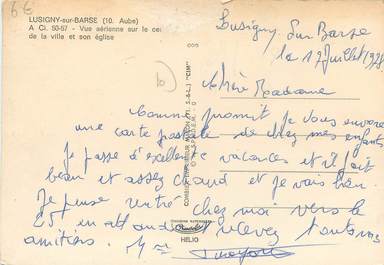 6€
LUSIGNY-sur-BARSE (10. Aube)
A Ci. 50-57 - Vue aérienne sur le ce
de la ville et son église
Lusigny Sur Barse
le 17 Juillet 1978
10
Chère Madame
Comme promit je vous envoie
une carte postale de chez mes enfants
je passe d'excellente vacances et il fait
beau et assez chaud et je vais bien
Je pense rentré chez moi vers le
25 en attendant recevez toutes mes
amitiers. Mme
COMBIER IMPRIMEUR MACON "CIM"
HELIO